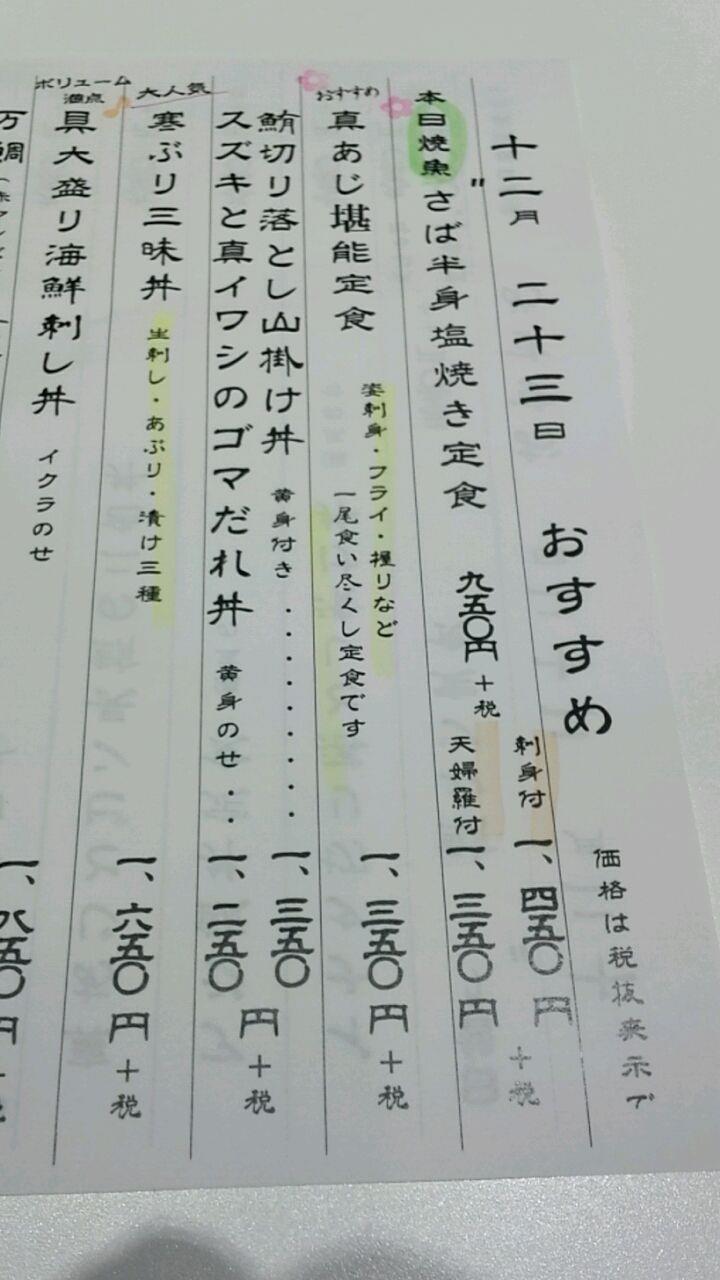 十二月 二十三日 おすすめ
価格は税抜表示で
本日焼魚 さば半身塩焼き定食 九五〇円+税
刺身付 一、四五〇円
天婦羅付 一、三五〇円
+税
おすすめ
真あじ堪能定食
姿刺身・フライ・握りなど
一尾食い尽くし定食です
一、三五〇円+税
鮪切り落とし山掛け丼 黄身付き・・・・・・・・・ 一、三五〇
スズキと真イワシのゴマだれ丼 黄身のせ・・ 一、二五〇
円+税
大人気
寒ぶり三昧丼 生刺し・あぶり・漬け三種 一、六五〇円+税
ボリューム
満点
具大盛り海鮮刺し丼 イクラのせ
一、八五〇円+税